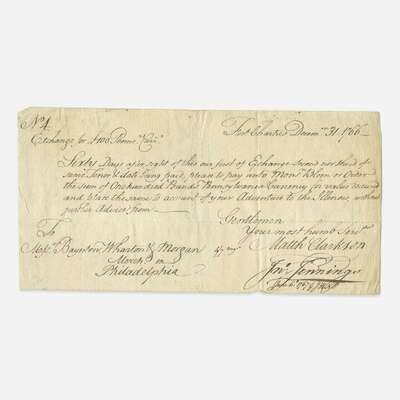 No. 4
Fort Chartres Decem.r 31. 1766
Exchange for
Sixty Days after sight of this our first of Exchange second nor third of
same Tenor & date being paid, please to pay unto Mons.r Blouin or Order
the sum of One hundred Pounds Pennsylvania Currency for value received
and place the same to account of your Adventure to the Illinois, without
further Advice from
Gentlemen
Your most humb.l Serv.ts
To
Mess.rs Baynton, Wharton & Morgan
Merch.ts in
Philadelphia
Matth Clarkson
Jn.o Jennings